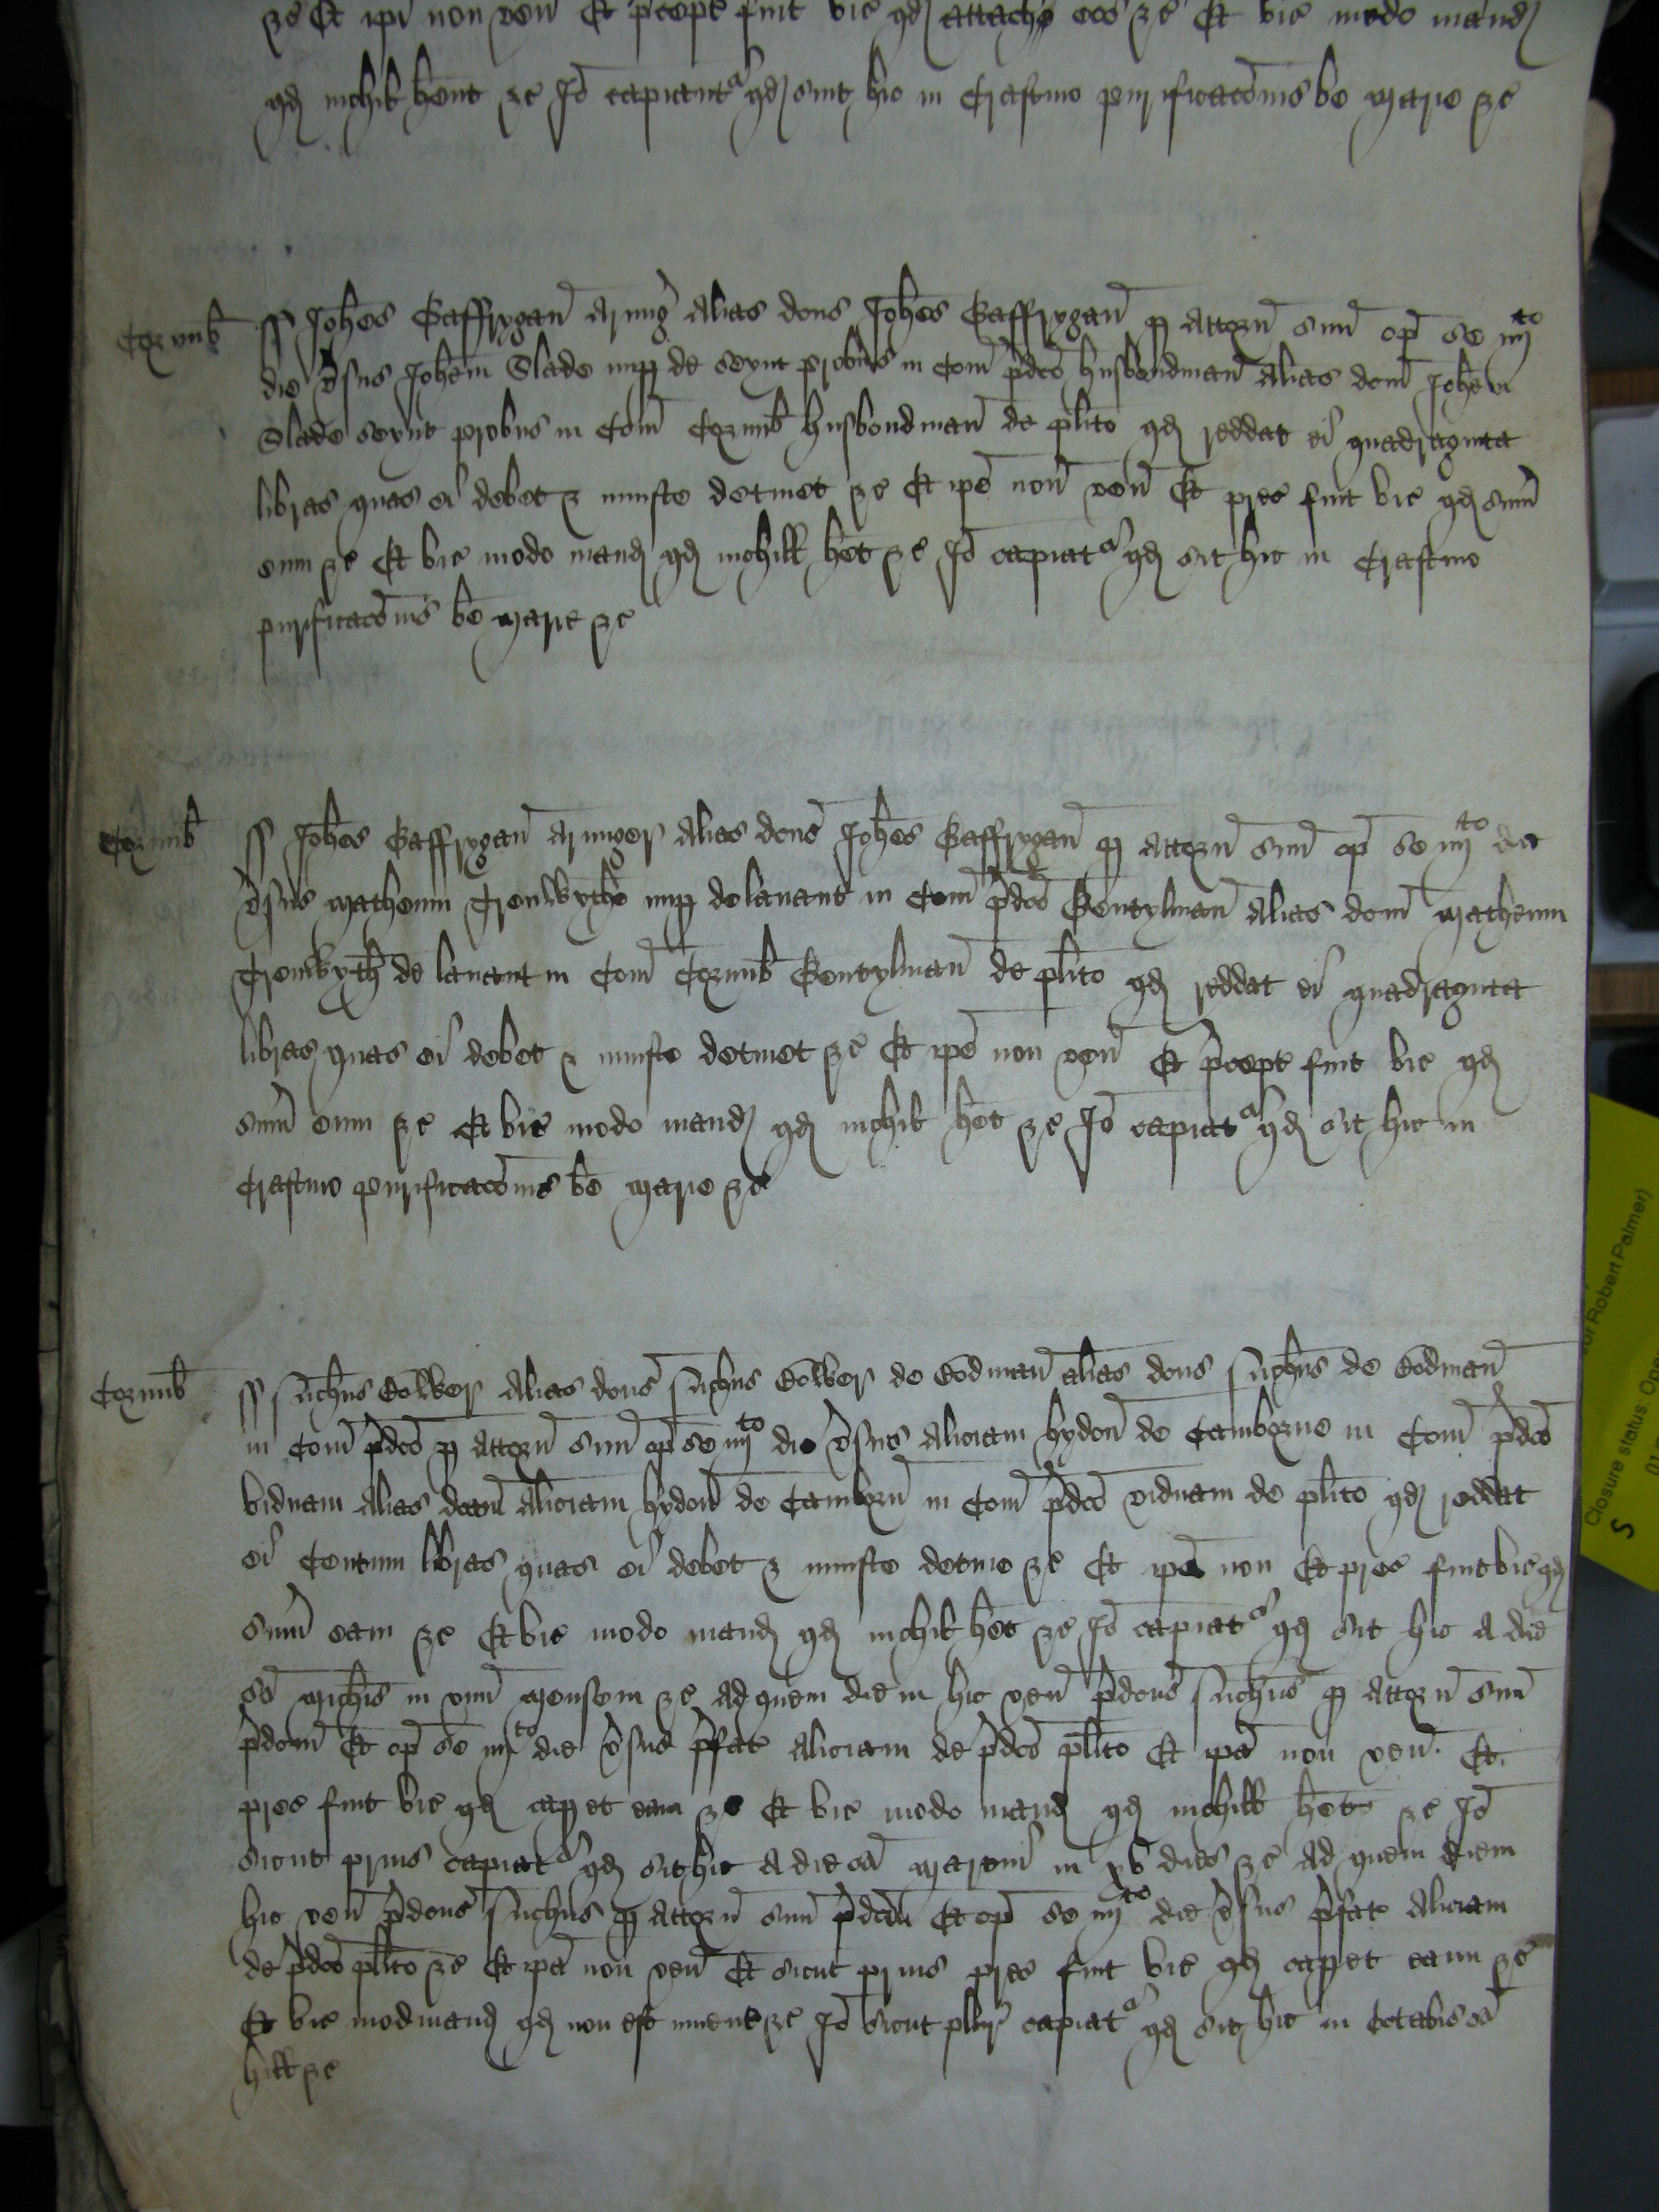 zc Et ipi non ven Et precept fuit vic qd attach eos zc Et vic modo mand
qd nichil hent zc Io capiant qd sint hic in Crastino purificacois be marie zc
Cornub ss Johes Gaffrygan Armig alias dcus Johes Gaffrygan p attorn suu op se iiijto
die vsus Johem Slade nup de seynt probus in Com pdco husbondman alias dcm Johem
Slade seynt probus in Com Cornub husbondman de plito qd reddat ei quadraginta
libras quas ei debet z iniuste detinet zc Et ipe non ven Et prec fuit vic qd sum
eum zc Et vic modo mand qd nichill het zc Io capiat qd sit hic in Crastino
purificacois be marie zc
Cornub ss Johes Gaffrygan Armiger alias dcus Johes Gaffrygan p attorn suu op se iiijto die
vsus Matheum Trenwythe nup de lanant in Com pdco Gentylman alias dcm Matheum
Trenwyth de lanant in Com Cornub Gentylman de plito qd reddat ei quadraginta
libras quas ei debet z iniuste detinet zc Et ipe non ven Et pcept fuit vic qd
sum eum zc Et vic modo mand qd nichil het zc Io capiat qd sit hic in
Crastino purificacois be marie zc
Cornub ss alias dcus de Bodman alias dcus de Bodman
in Com pdco p attorn suu op se iiijto die vsus Aliciam hydon de Camborne in Com pdco
viduam alias dcam Aliciam hydon de Camborn in Com pdco viduam de plito qd reddat
ei Centum libras quas ei debet z iniuste detine zc Et ipa non Et prec fuit vic qd
sum eam zc Et vic modo mand qd nichil het zc Io capiat qd sit hic a die
sci Michis in unu mensem zc ad quem diem hic ven pdcus p attorn suu
pdcm Et op se iiijto die vsus pfat Aliciam de pdco plito Et ipa non ven Et
prec fuit vic qd capet eam zc Et vic modo mand qd nichill het zc Io
sicut prius capiat qd sit hic a die sci Martini in xv dies zc ad quem diem
hic ven pdcus p attorn suu pdcm Et op se iiijto die vsus pfat Aliciam
de pdco plito zc Et ipa non ven Et sicut prius prec fuit vic qd capet eam zc
Et vic mod mand qd non est invent zc Io sicut plur capiat qd sit hic in Octabis sci
hill zc
or Robert Palmer)
Closure status: Ope
S